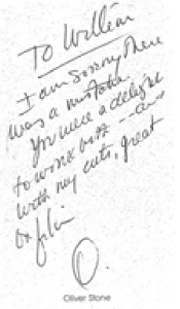 To William
I am sorry there
was a mistake.
You were a delight
to work with --and
with my cuts, great
O.
Oliver Stone